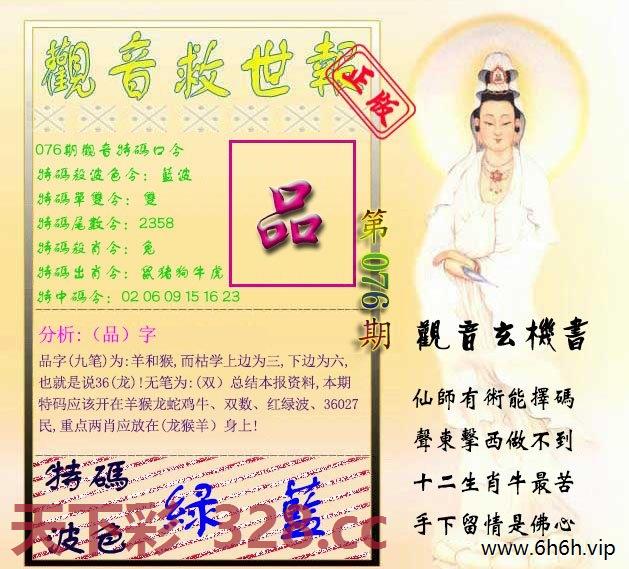 觀音救世報
正版
076期觀音特碼口令
特碼殺波色令：藍波
特碼單雙令：雙
特碼尾數令：2358
特碼殺肖令：兔
特碼出肖令：鼠猪狗牛虎
特中碼令：02 06 09 15 16 23
品
第076期
分析:（品）字
品字(九笔)为:羊和猴,而枯学上边为三,下边为六,
也就是说36(龙)!无笔为:(双）总结本报资料,本期
特码应该开在羊猴龙蛇鸡牛、双数、红绿波、36027
民,重点两肖应放在(龙猴羊）身上!
特碼
波色
綠 藍
天下彩 328.cc
觀音玄機書
仙師有術能擇碼
聲東擊西做不到
十二生肖牛最苦
手下留情是佛心
www.6h6h.vip